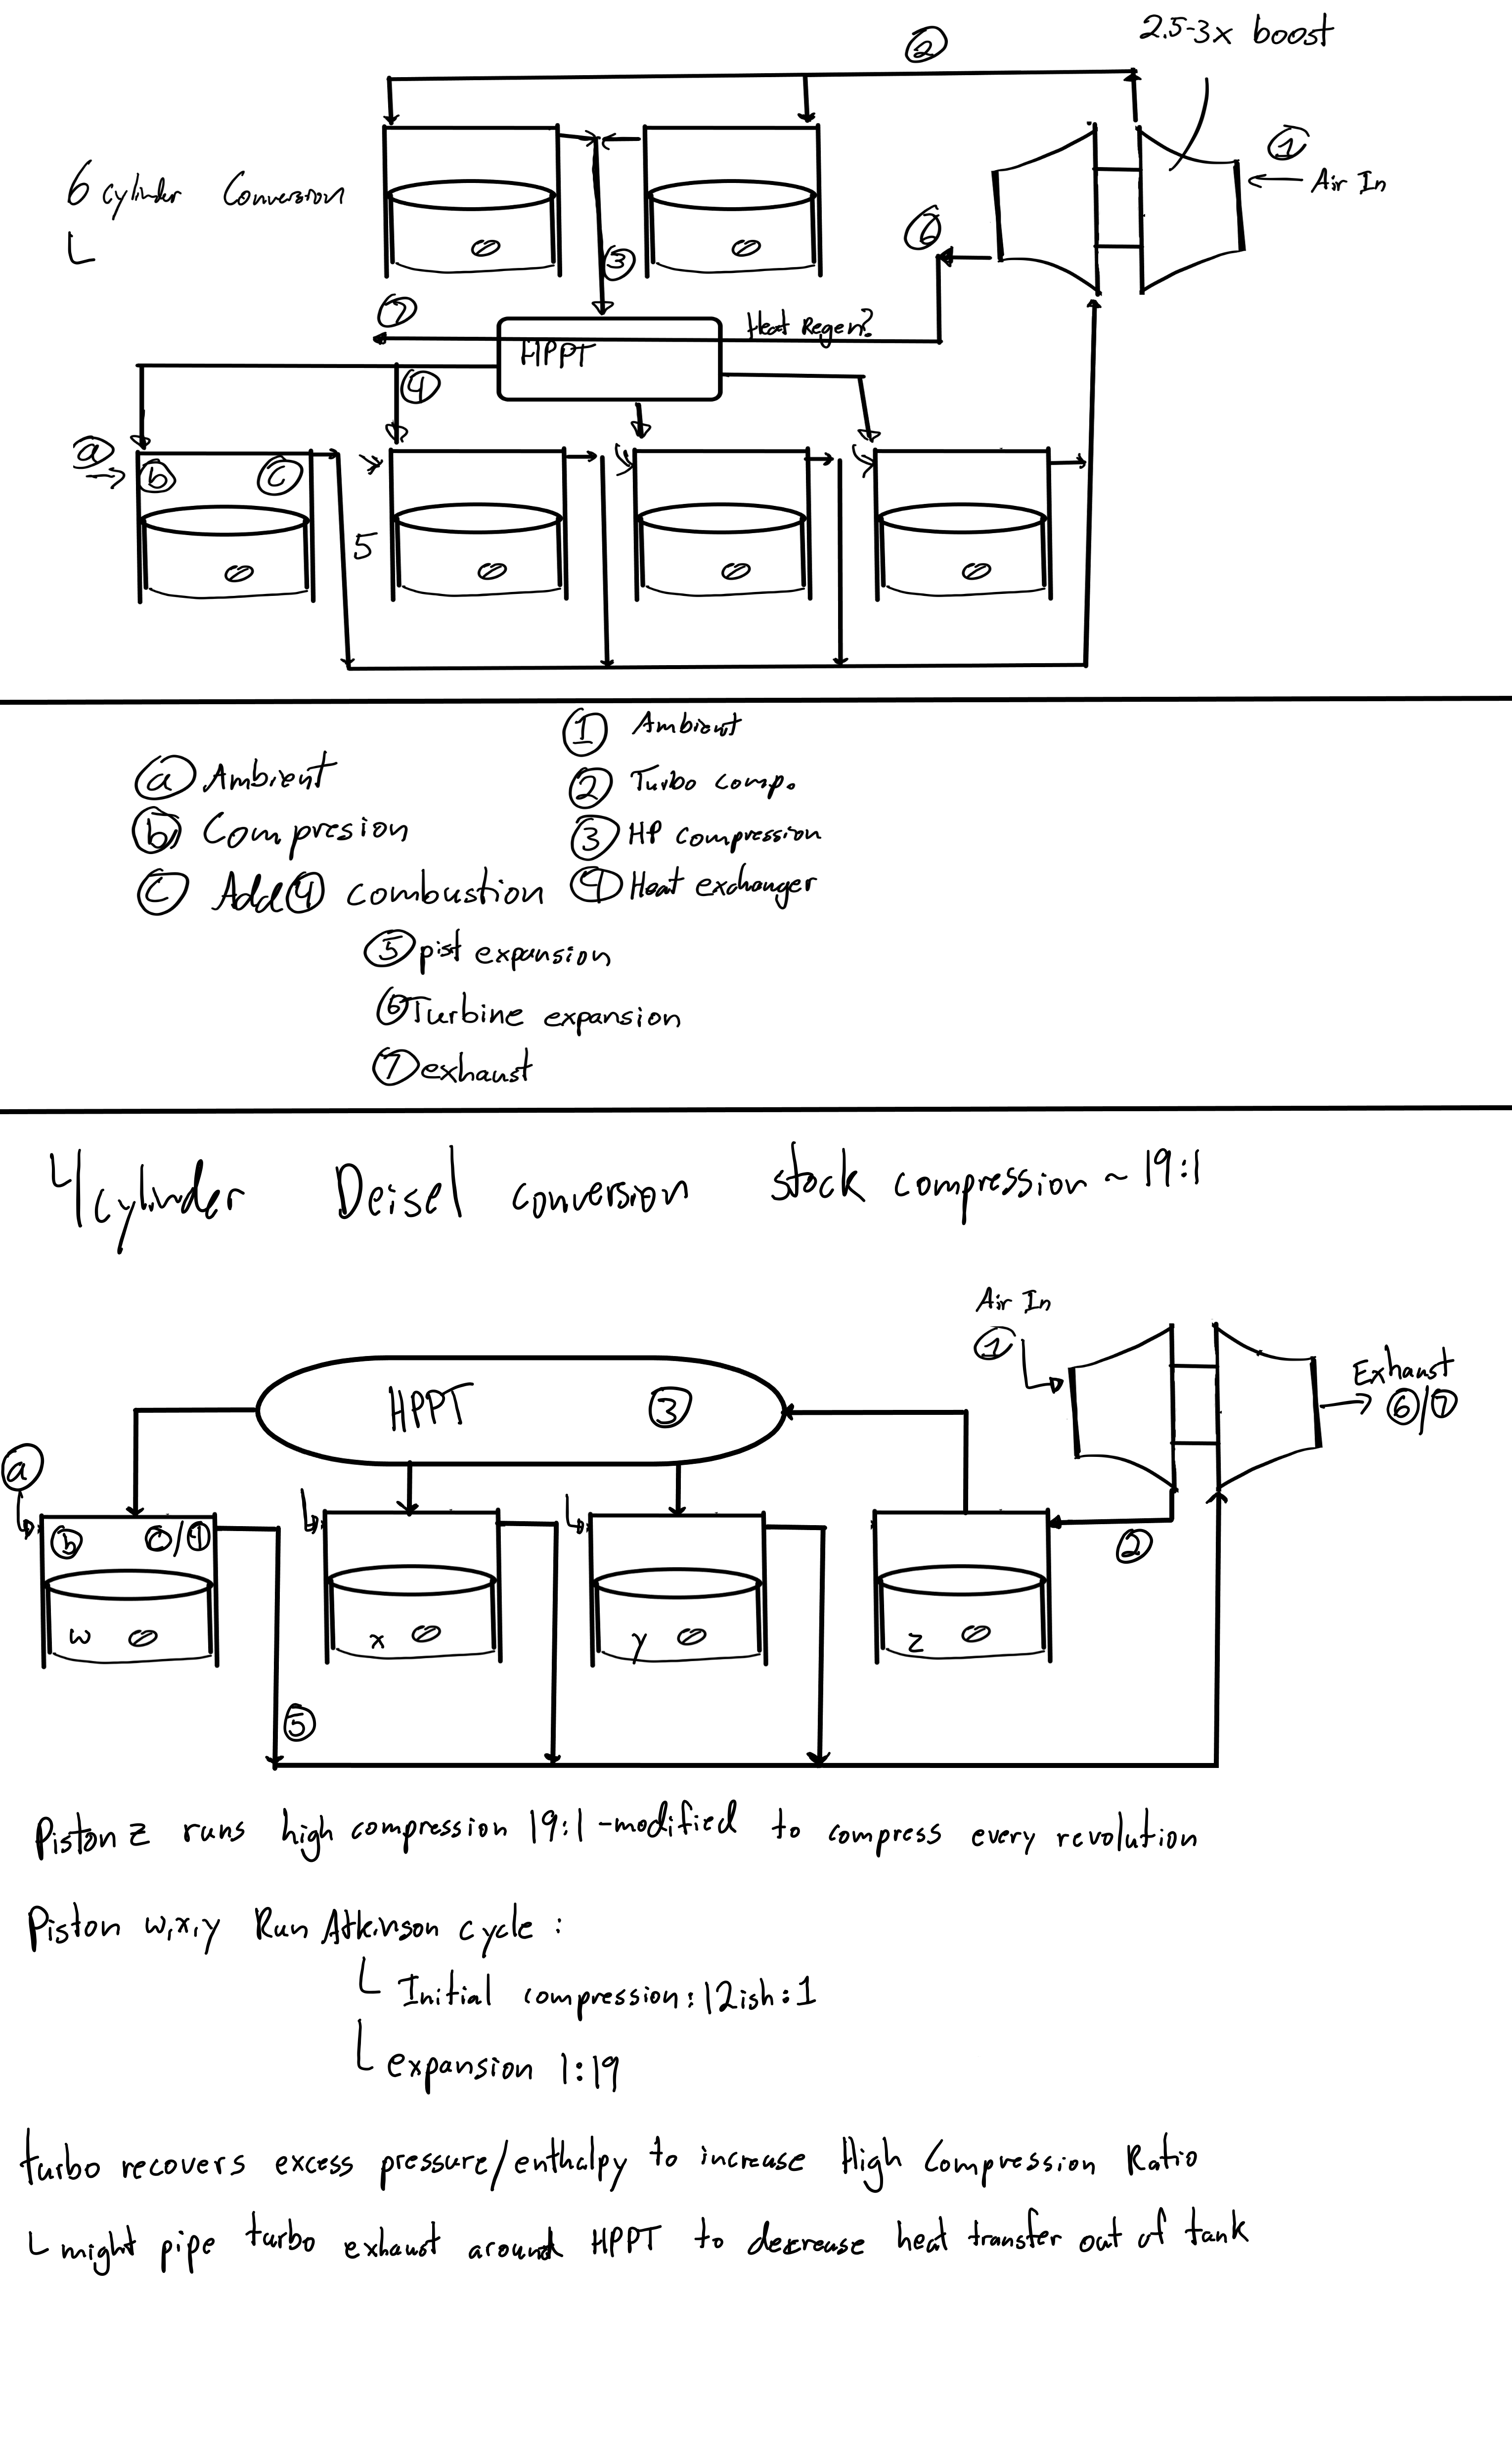 ②
2.5-3x boost
①
Air In
6 cylinder Conversion
⑥
③
⑦
Heat Regen?
HPPT
④
ⓐ
ⓑ
ⓒ
5
① Ambient
ⓐ Ambient
② Turbo comp.
ⓑ Compresion
③ HP compression
ⓒ Add ④ combustion
④ Heat exchanger
⑤ pist expansion
⑥ Turbine expansion
⑦ exhaust
4 cylinder Deisel conversion stock compression ~ 19:1
Air In
①
HPPT ③
Exhaust
⑥/⑦
ⓐ
ⓑ ⓒ/④
②
w x y z
⑤
Piston z runs high compression 19:1 -modified to compress every revolution
Piston w,x,y Run Atkinson cycle :
Initial compression: 12ish:1
expansion 1:19
turbo recovers excess pressure/enthalpy to increase High Compression Ratio
might pipe turbo exhaust around HPPT to decrease heat transfer out of tank